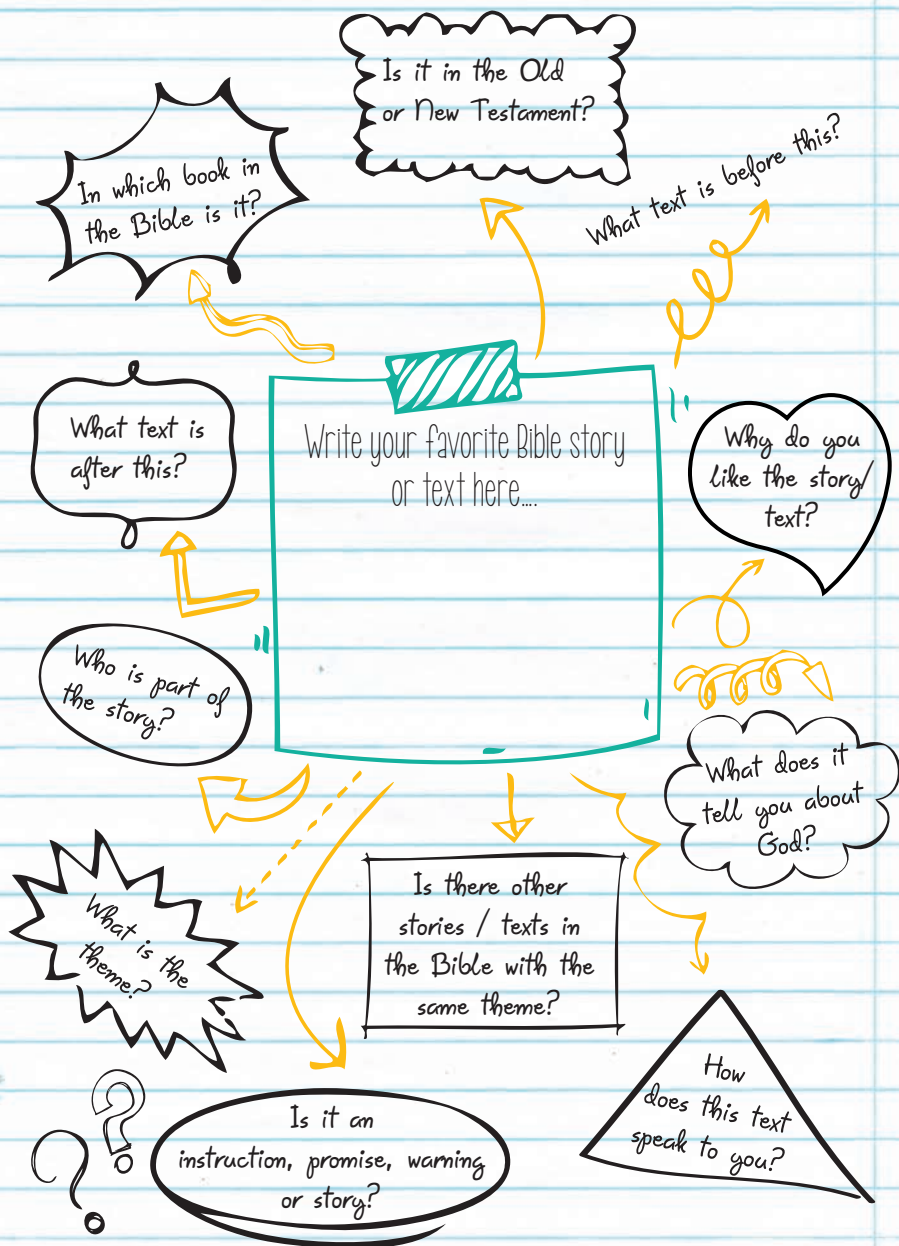 Is it in the Old
or New Testament?
In which book in
the Bible is it?
What text is before this?
What text is
after this?
Write your favorite Bible story
or text here....
Why do you
like the story/
text?
Who is part of
the story?
What does it
tell you about
God?
What is the
theme?
Is there other
stories / texts in
the Bible with the
same theme?
How
does this text
speak to you?
Is it an
instruction, promise, warning
or story?